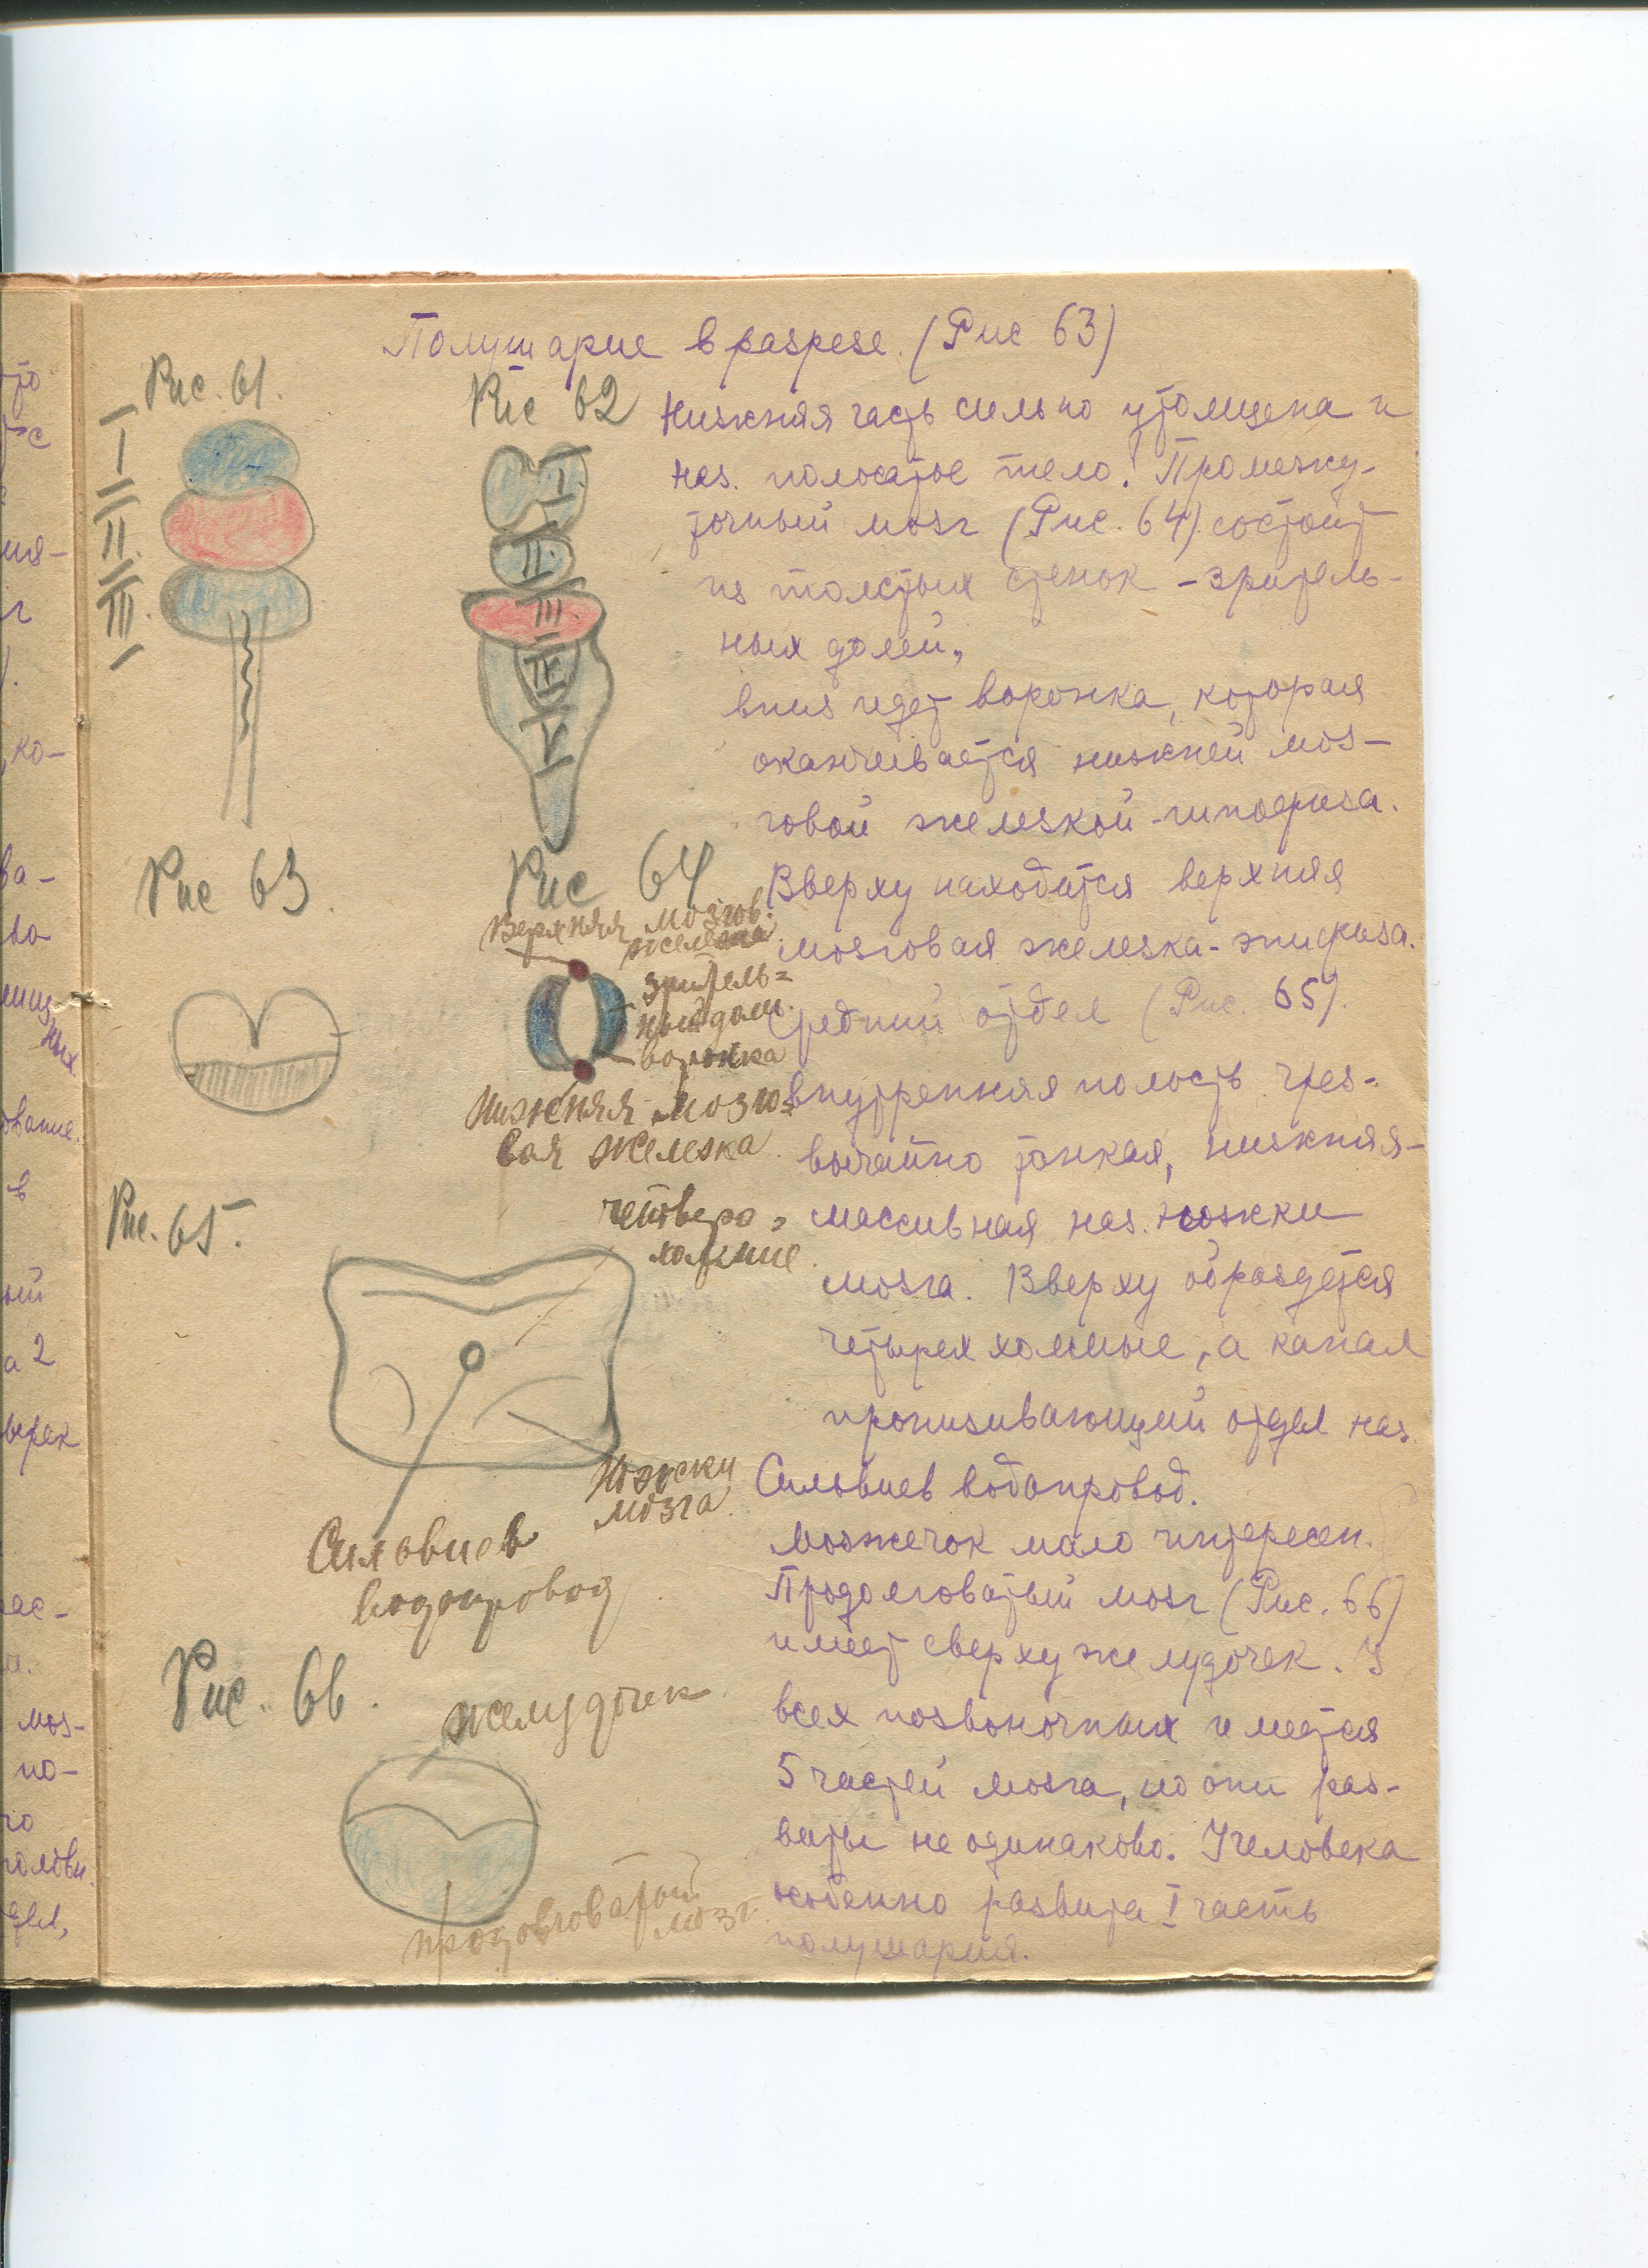 Полушарие в разрезе. (Рис 63)
Рис. 61.
I
II
III
Рис 62
I
II
III
IV
V
Нижняя часть сильно утолщена и
наз. полосатое тело. Промежу-
точный мозг (Рис. 64) состоит
из толстых стенок - зритель-
ных долей,
вниз идет воронка, которая
оканчивается нижней моз-
говой железкой - гипофиза.
Вверху находится верхняя
мозговая железка - эпифиза.
Средний отдел (Рис. 65).
внутренняя полость чрез-
вычайно тонкая, нижняя -
массивная наз. ножки
мозга. Вверху образуется
четырех холмие, а канал
пронизывающий отдел наз.
Сильвиев водопровод.
Мозжечок мало интересен.
Продолговатый мозг (Рис. 66)
имеет сверху желудочек. У
всех позвоночных имеется
5 частей мозга, но они раз-
виты не одинаково. У человека
особенно развита I часть
полушария.
Рис 63.
Рис 64
Верхняя мозгов.
железка
зритель=
ный
воронка
Нижняя мозго=
вая железка
Рис. 65.
четверо=
холмие.
Ножски
мозга.
Сильвиев
водопровод
Рис. 66.
желудочек
продовговатый
мозг.
ко-
ва-
ных
ование.
в
ый
а 2
моз-
по-
го